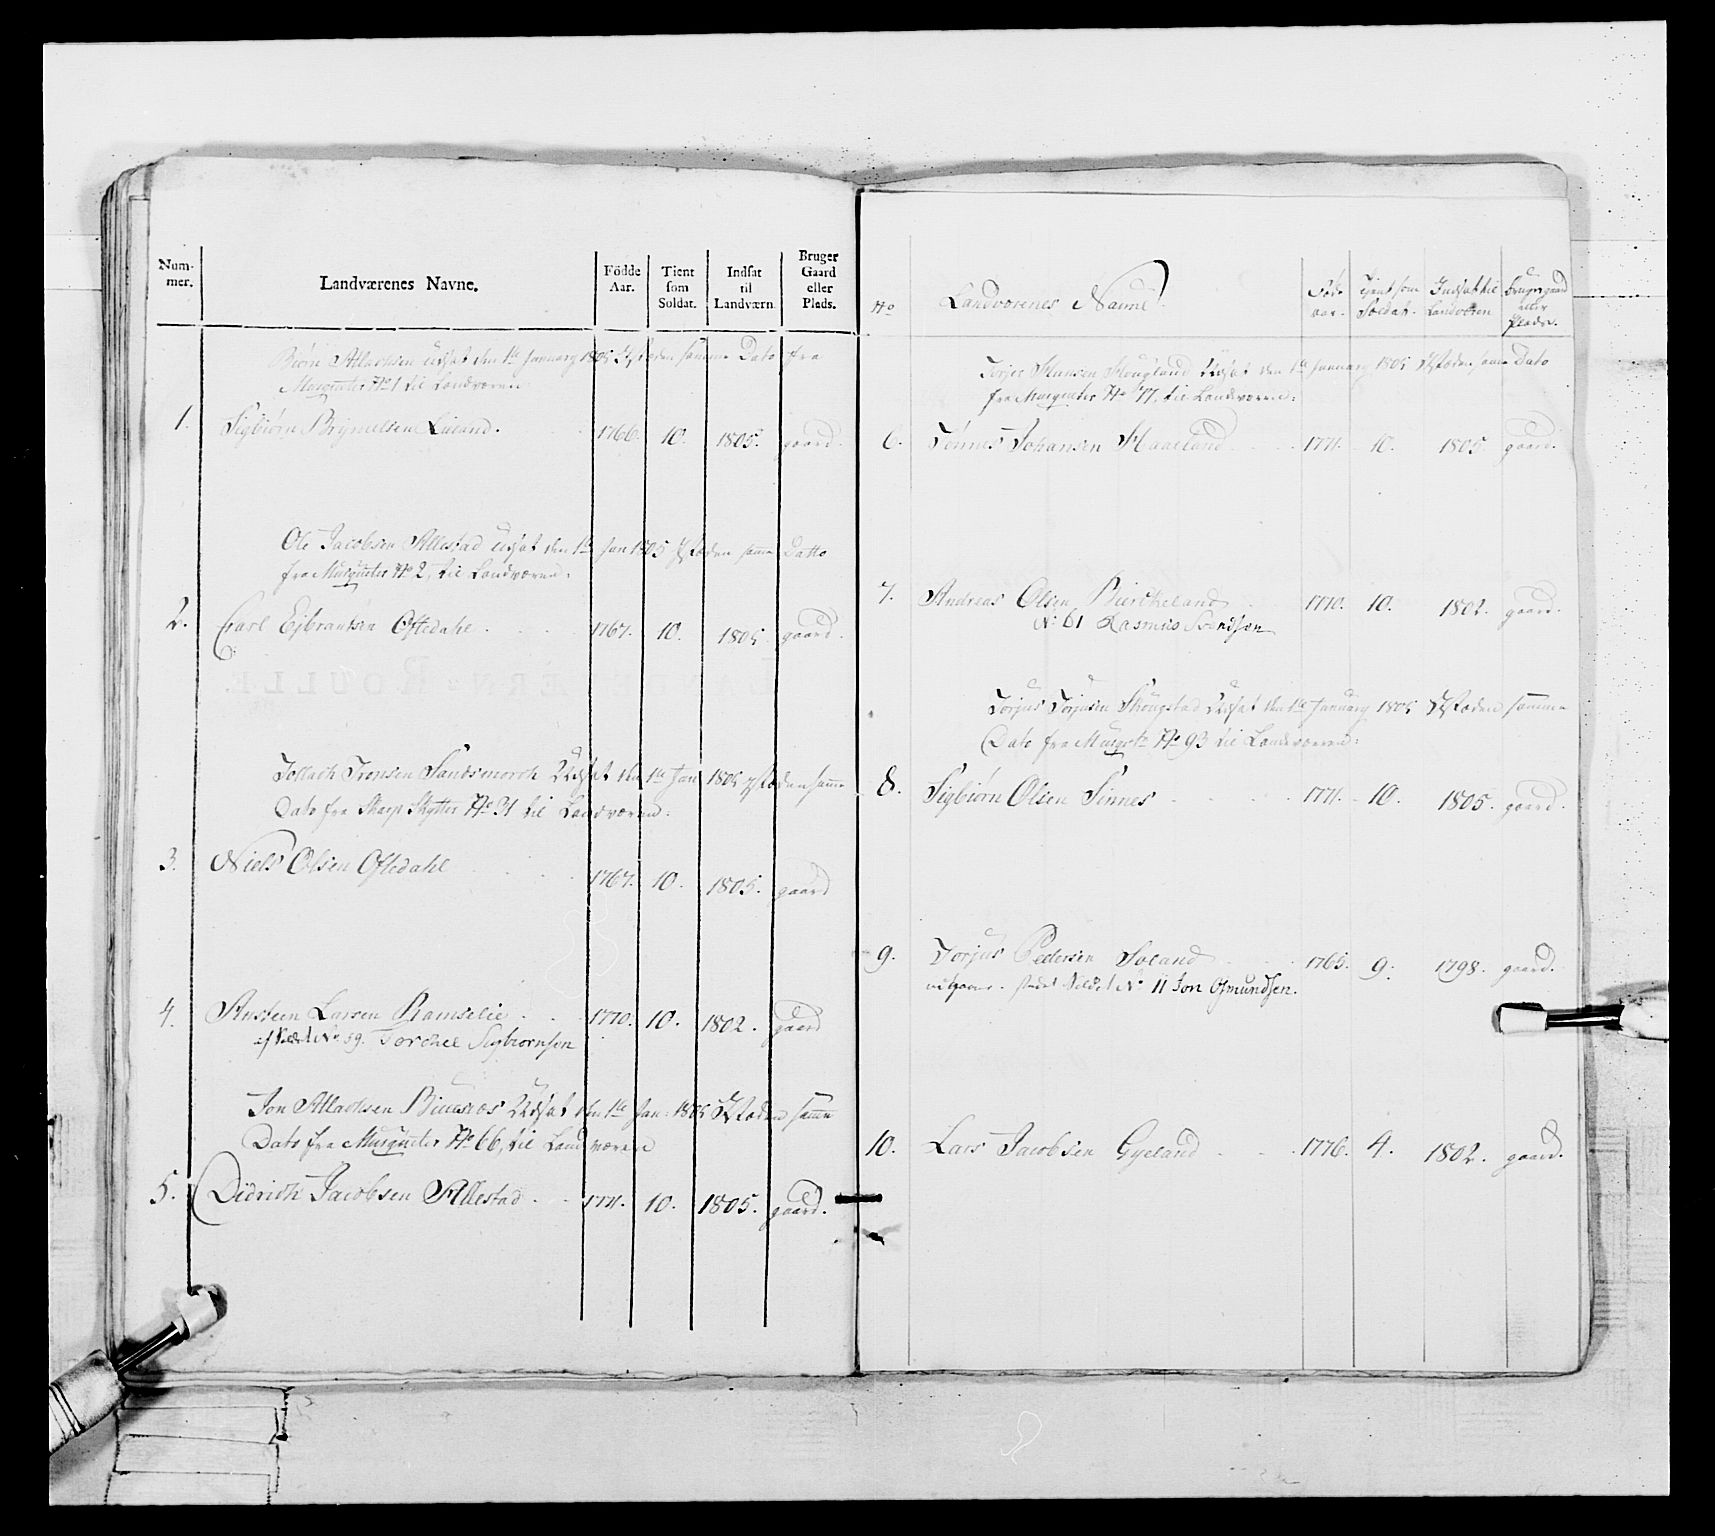 Num-
mer.
Landværenes Navne.
Födde
Aar.
Tient
som
Soldat.
Indsat
til
Landværn.
Bruger
Gaard
eller
Plads.
Biørn Atlachsen Udsat den 1te January 1805 samme Dato fra
Musqueter No 1 til Landværnet
1. Sigbiørn Brynielsen Lieland. 1766. 10. 1805. gaard.
Ole Jacobsen Allestad Udsat den 1te Jan 1805 samme Datto
fra Musqueter No 2, til Landværnet.
2. Carl Ejbrantsen Oftedahl. 1767. 10. 1805. gaard.
Tollach Tronsen Sandsmorch Udsat den 1te Jan 1805 samme
Dato fra Skarp Skytter No 31 til Landværnet.
3. Niels Olsen Oftedahl 1767. 10. 1805. gaard
4. Austeen Larsen Ramslie 1770. 10. 1802. gaard
No 59. Torchel Sigbiørnsen
Jon Atlachsen Udsat den 1te Jan: 1805 samme
Dato fra Musqueter No 66, til Landværnet
5. Didrich Jacobsen Allestad 1771. 10. 1805. gaard.
No
Landværenes Navne
Føde
aar.
Tjent som
Soldat.
Indsat til
Landværn
Bruger gaard
eller
Plads.
Torjer Hansen Houglund Udsat den 1te January 1805 samme Dato
fra Musqueter No 77, til Landværnet:
6. Tønnes Johansen Haaeland 1771. 10. 1805. gaard.
7. Andreas Olsen Bierkeland 1770. 10. 1802. gaard.
No 61 Rasmus Svendsen
Torjus Torjusen Skougstad Udsat den 1te January 1805 samme
Dato fra Musqtr No 93 til Landværnet:
8. Sigbiørn Olsen Sinnes 1771. 10. 1805. gaard.
9. Torjus Pedersen Soland 1765. 9. 1798. gaard.
udgaaer. No 11 Jon Osmundsen.
10. Lars Jacobsen Gyeland 1776. 4. 1802. gaard.